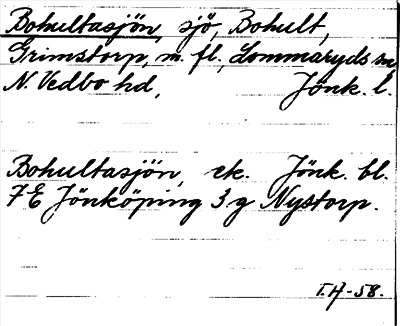 Bohultasjön, sjö, Bohult,
Grimstorp, m. fl., Lommaryds sn,
N. Vedbo hd, Jönk. l.
Bohultasjön, ek. Jönk. bl.
7E Jönköping 3 g Nystorp.
T.H-58.